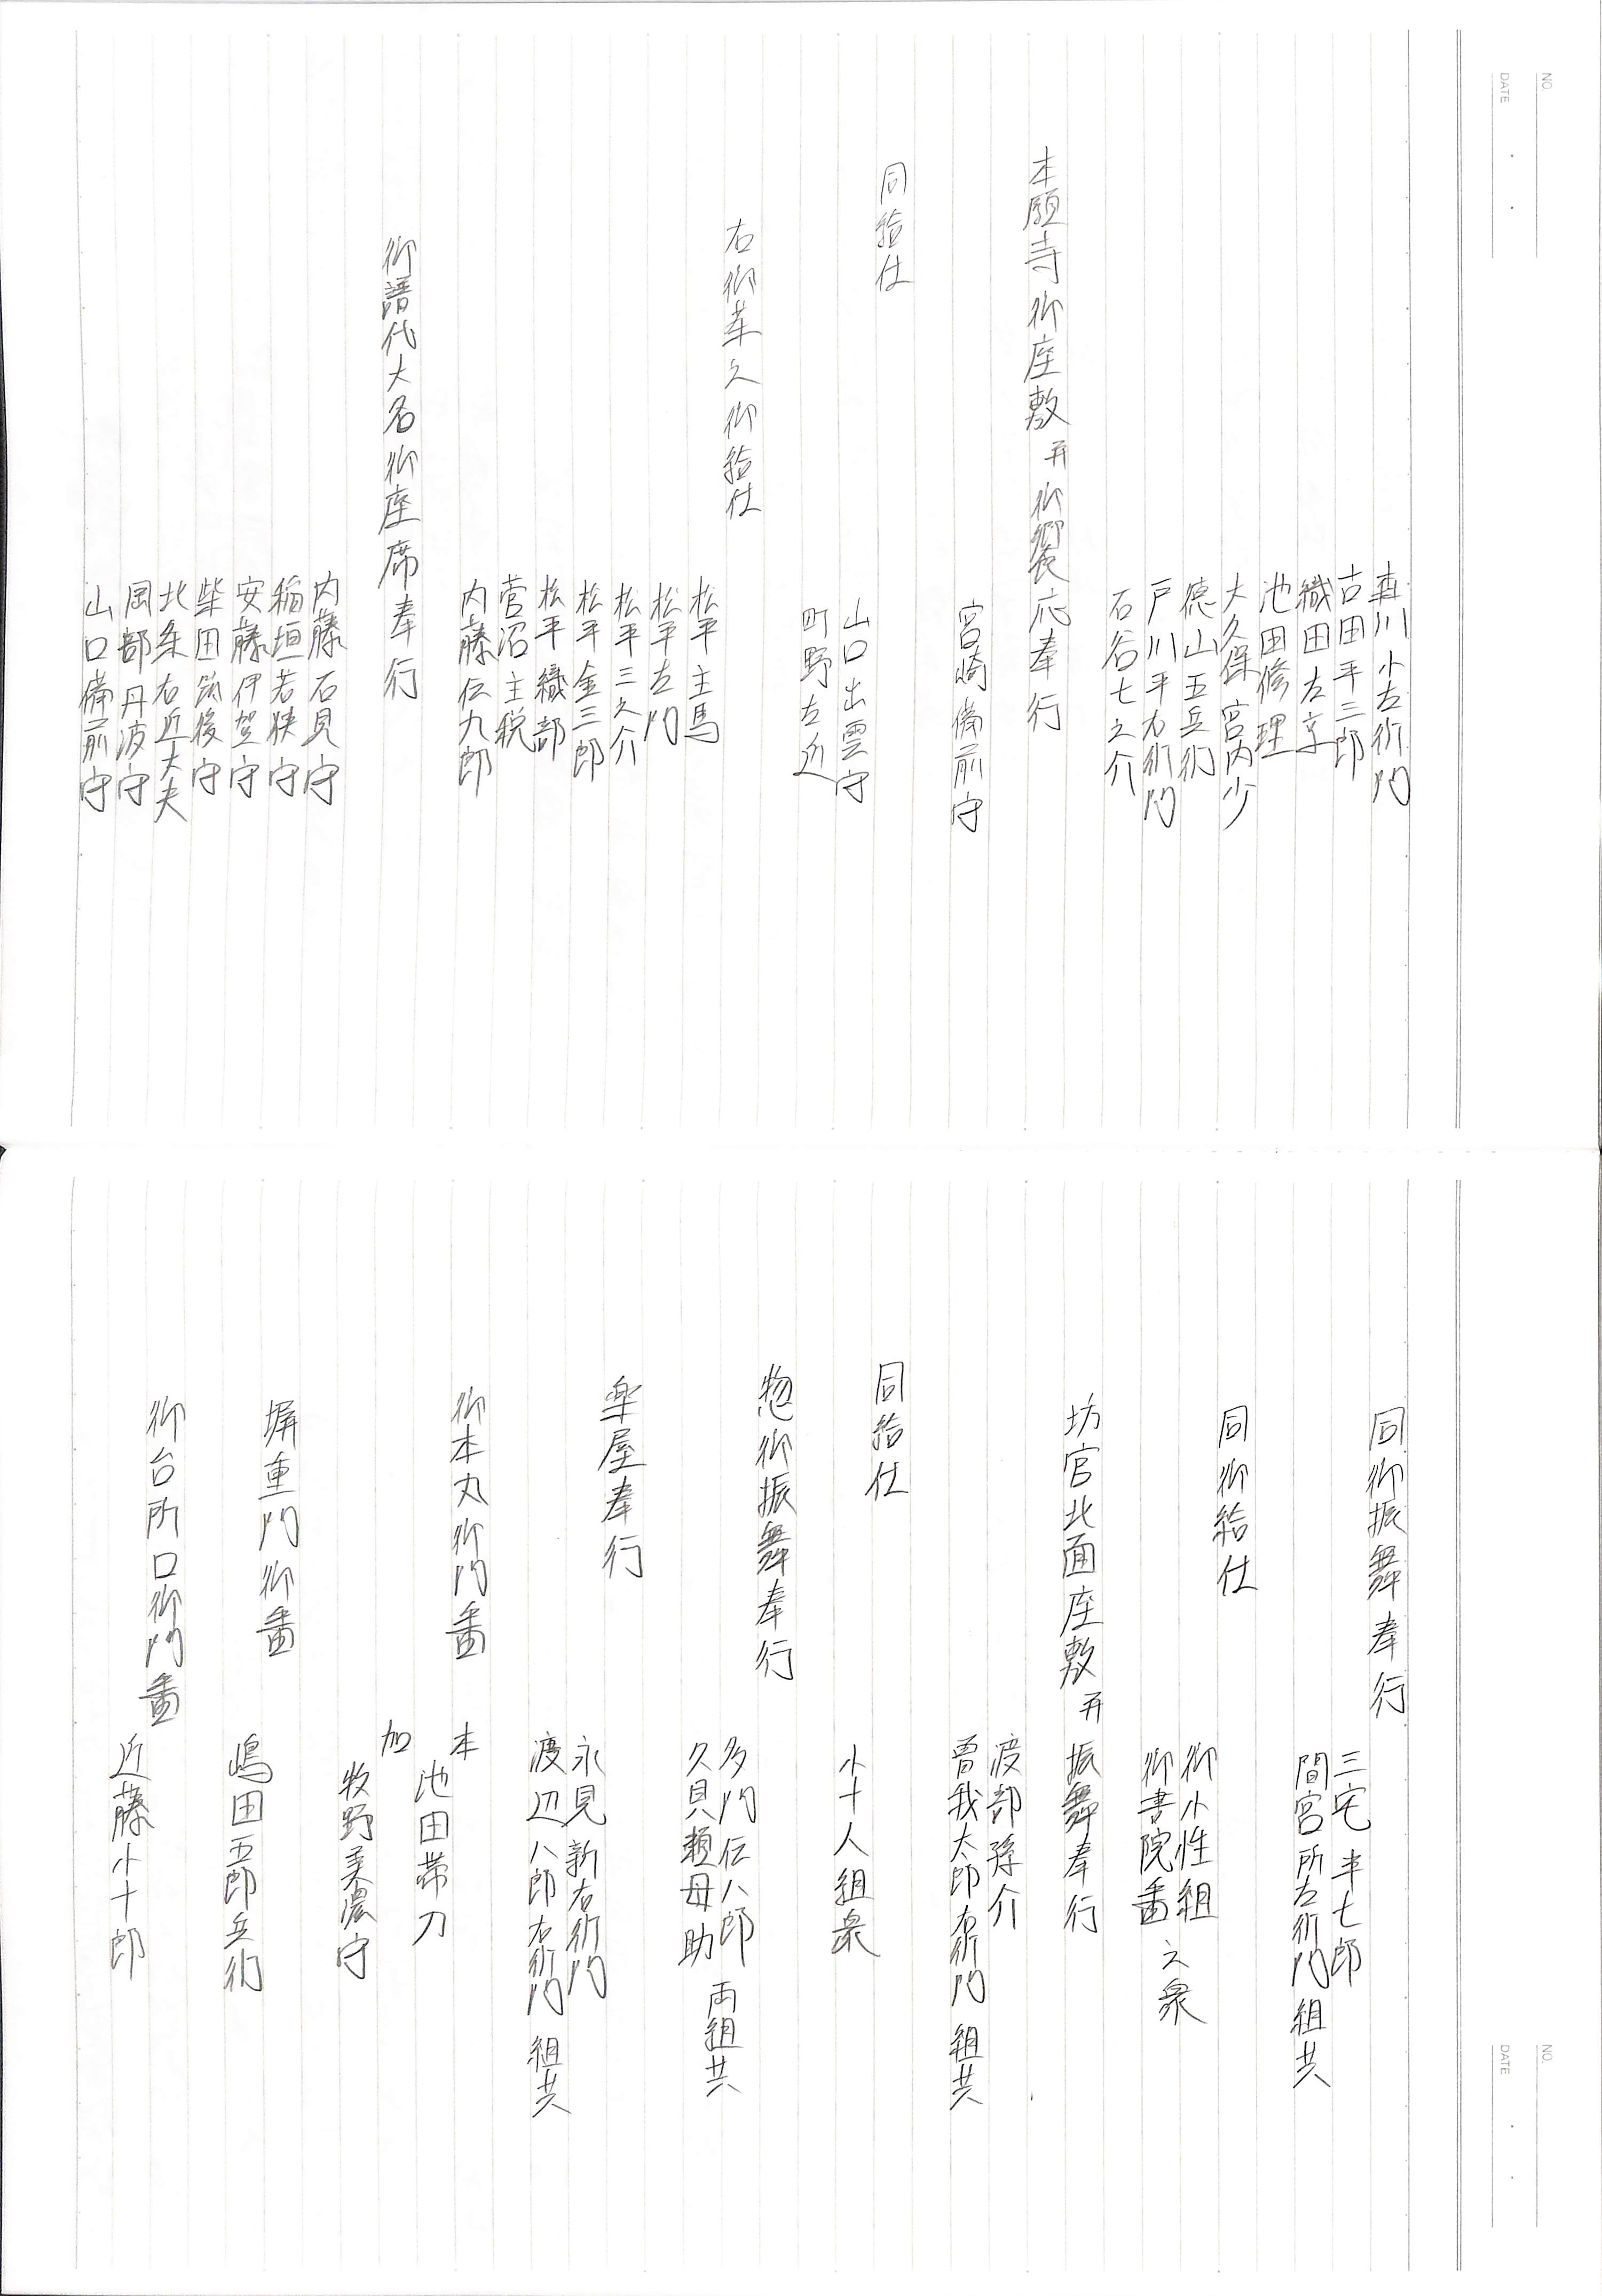 森川小左衛門
古田平三郎
織田左京
池田修理
大久保宮内少
徳山五兵衛
戸川平右衛門
石谷七之介
本願寺御座敷并御饗応奉行
宮崎備前守
同給仕
山口出雲守
町野左近
右御輩之御給仕
松平主馬
松平左門
松平三之介
松平金三郎
松平織部
菅沼主税
内藤伝九郎
御譜代大名御座席奉行
内藤石見守
稲垣若狭守
安藤伊賀守
柴田筑後守
北条右近大夫
岡部丹波守
山口備前守
NO.
DATE
同御振舞奉行
三宅半七郎
間宮所左衛門 組共
同御給仕
御小性組
御書院番 之衆
坊官北面座敷并振舞奉行
渡部孫介
曽我太郎右衛門 組共
同給仕
小十人組衆
惣御振舞奉行
多門伝八郎
久貝頼母助 両組共
楽屋奉行
永見新右衛門
渡辺八郎右衛門 組共
御本丸御門番
本 池田帯刀
加 牧野美濃守
塀重門御番
嶋田五郎兵衛
御台所口御門番
近藤小十郎
NO.
DATE